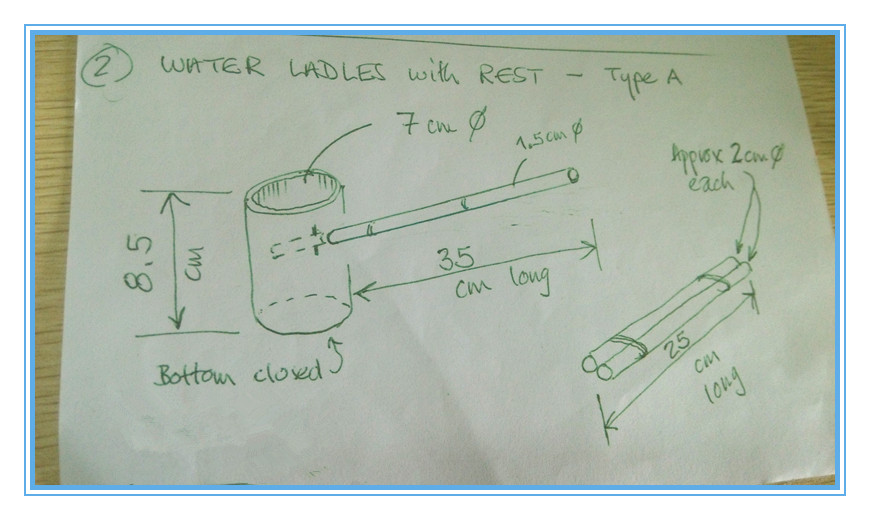 2 WATER LADLES with REST - Type A
7 cm Ø
1.5 cm Ø
Approx 2 cm Ø
each
8.5
cm
35
cm long
Bottom closed
25
cm
long